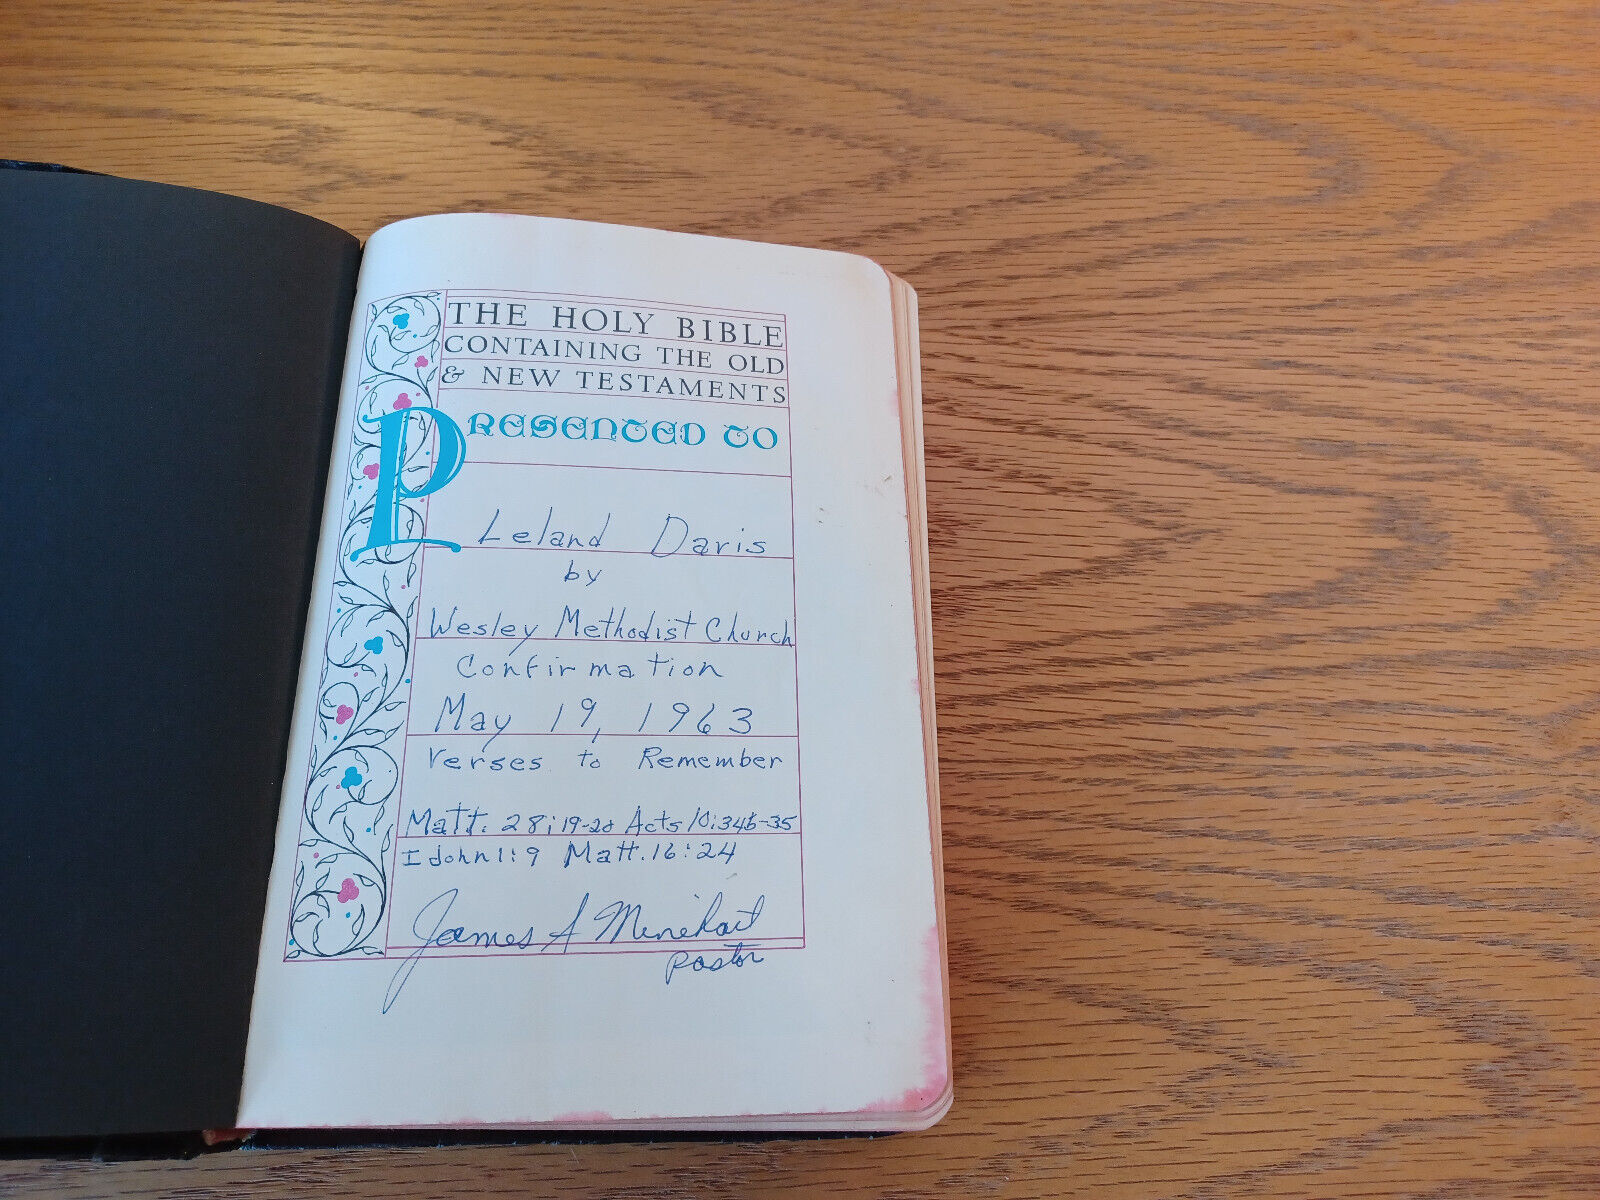 THE HOLY BIBLE
CONTAINING THE OLD
& NEW TESTAMENTS
PRESENTED TO
Leland Davis
by
Wesley Methodist Church
Confirmation
May 19, 1963
Verses to Remember
Matt. 28:19-20 Acts 10:34b-35
I John 1:9 Matt. 16:24
James A Minehart
pastor